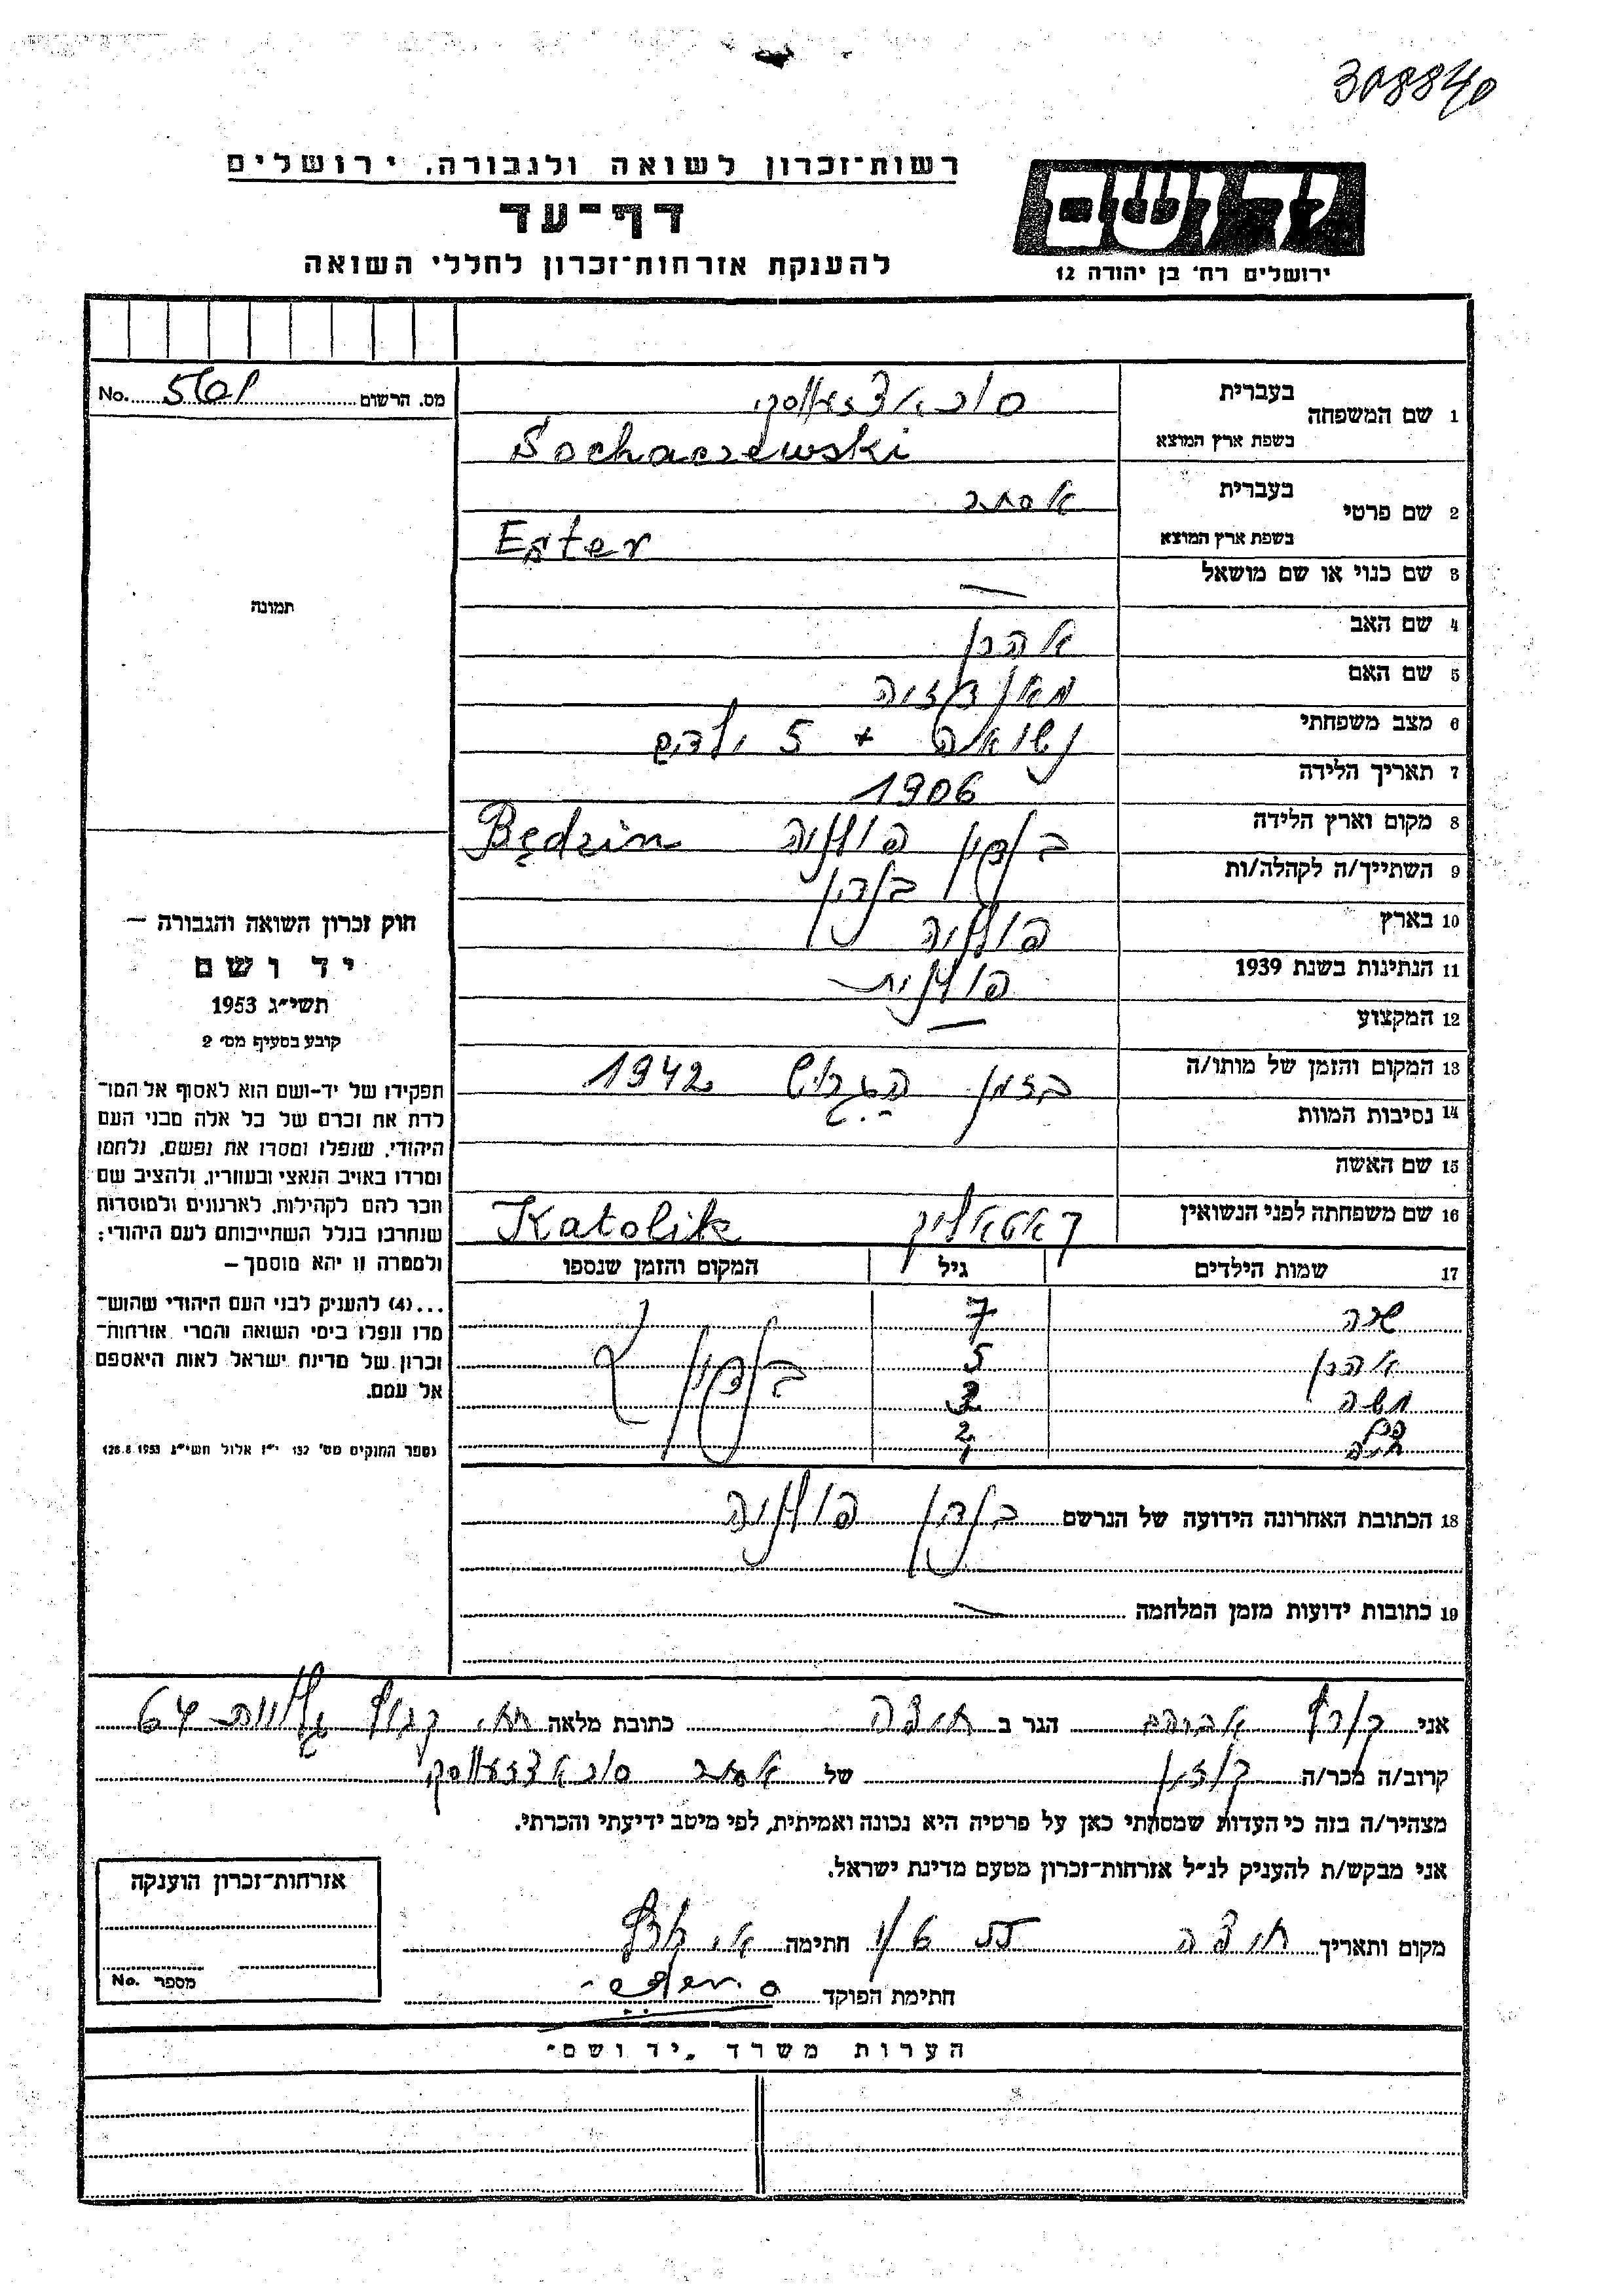 308840
רשות־זכרון לשואה ולגבורה, ירושלים
דף־עד
להענקת אזרחות־זכרון לחללי השואה
ידושם
ירושלים רח' בן יהודה 12
מס. הרשום No. 5601
1 שם המשפחה
בעברית
בשפת ארץ המוצא Sochaczewski
2 שם פרטי
בעברית אסתר
בשפת ארץ המוצא Ester
3 שם כנוי או שם מושאל —
4 שם האב אהרן
5 שם האם
6 מצב משפחתי נשואה + 5 ילדים
7 תאריך הלידה 1906
8 מקום וארץ הלידה בנדין פולניה Będzin
9 השתייך/ה לקהלה/ות בנדין
10 בארץ פולניה
11 הנתינות בשנת 1939 פולנית
12 המקצוע —
13 המקום והזמן של מותו/ה בזמן הגרוש 1942
14 נסיבות המוות
15 שם האשה
16 שם משפחתה לפני הנשואין קאטאליק Katolik
17 שמות הילדים גיל המקום והזמן שנספו
שרה 7
אהרן 5 בנדין
משה 3
2
1
18 הכתובת האחרונה הידועה של הנרשם בנדין פולניה
19 כתובות ידועות מזמן המלחמה —
תמונה
חוק זכרון השואה והגבורה —
יד ושם
תשי״ג 1953
קובע בסעיף מס' 2
תפקידו של יד-ושם הוא לאסוף אל המו־
לדת את זכרם של כל אלה מבני העם
היהודי, שנפלו ומסרו את נפשם, נלחמו
ומרדו באויב הנאצי ובעוזריו, ולהציב שם
וזכר להם לקהילות, לארגונים ולמוסדות
שנחרבו בגלל השתייכותם לעם היהודי;
ולמטרה זו יהא מוסמך —
...(4) להעניק לבני העם היהודי שהוש־
מדו ונפלו בימי השואה והמרי אזרחות־
זכרון של מדינת ישראל לאות היאספם
אל עמם.
(ספר החוקים מס' 132 י״ז אלול תשי״ג 26.8.1953)
אני אברהם הגר ב חיפה כתובת מלאה גליות 64
קרוב/ה מכר/ה קוזין של אסתר
מצהיר/ה בזה כי העדות שמסרתי כאן על פרטיה היא נכונה ואמיתית, לפי מיטב ידיעתי והכרתי.
אני מבקש/ת להעניק לנ״ל אזרחות־זכרון מטעם מדינת ישראל.
מקום ותאריך חיפה 1/6 55 חתימה
חתימת הפוקד
אזרחות־זכרון הוענקה
מספר No.
הערות משרד „יד ושם״